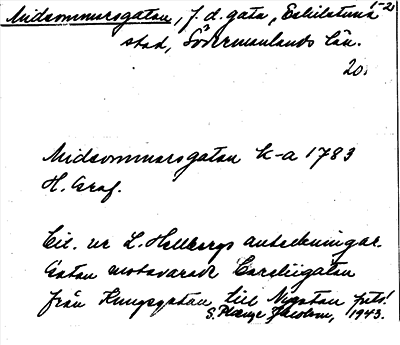 Midsommarsgatan, f.d. gata, Eskilstuna 1-2
stad, Södermanlands län.
20.
Midsommarsgatan k-a 1783
H. Graf.
Cit. ur L. Hellbergs anteckningar.
Gatan motsvarade Careliigatan
från Kungsgatan till Nygatan forts!
S. 1943.